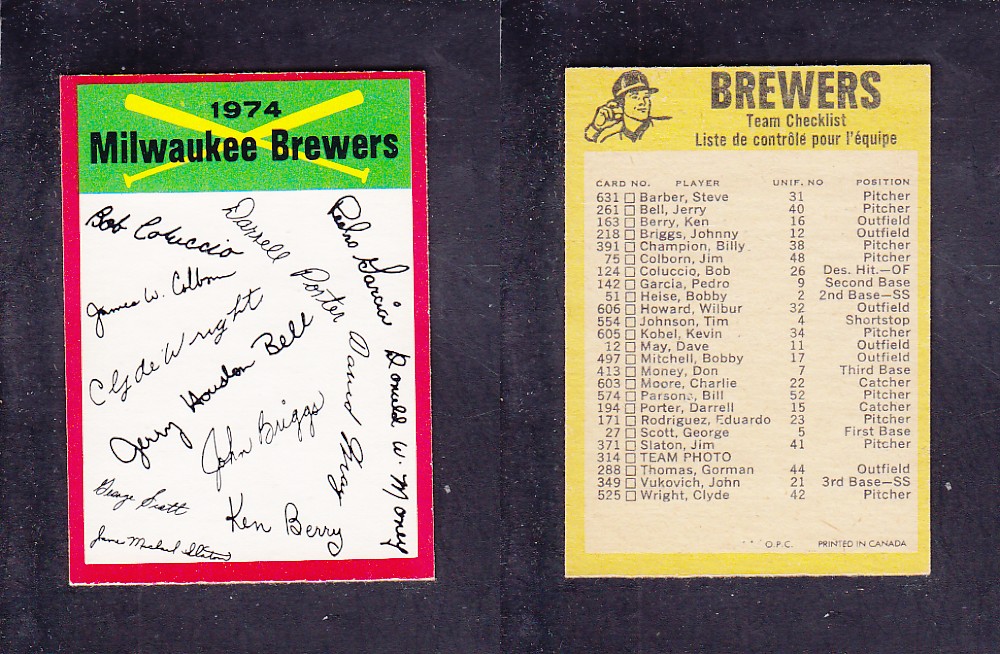 1974
Milwaukee Brewers
Bob Coluccio
Darrell Porter
Pedro Garcia
James W. Colborn
Clyde Wright
Jerry Houston Bell
David May
Donald W. Money
John Briggs
George Scott
Ken Berry
James Michael Slaton
BREWERS
Team Checklist
Liste de contrôlé pour l'équipe
CARD NO. PLAYER UNIF. NO POSITION
631 Barber, Steve 31 Pitcher
261 Bell, Jerry 40 Pitcher
163 Berry, Ken 16 Outfield
218 Briggs, Johnny 12 Outfield
391 Champion, Billy 38 Pitcher
75 Colborn, Jim 48 Pitcher
124 Coluccio, Bob 26 Des. Hit.—OF
142 Garcia, Pedro 9 Second Base
51 Heise, Bobby 2 2nd Base—SS
606 Howard, Wilbur 32 Outfield
554 Johnson, Tim 4 Shortstop
605 Kobel, Kevin 34 Pitcher
12 May, Dave 11 Outfield
497 Mitchell, Bobby 17 Outfield
413 Money, Don 7 Third Base
603 Moore, Charlie 22 Catcher
574 Parsons, Bill 52 Pitcher
194 Porter, Darrell 15 Catcher
171 Rodriguez, Eduardo 23 Pitcher
27 Scott, George 5 First Base
371 Slaton, Jim 41 Pitcher
314 TEAM PHOTO
288 Thomas, Gorman 44 Outfield
349 Vukovich, John 21 3rd Base—SS
525 Wright, Clyde 42 Pitcher
O.P.C. PRINTED IN CANADA